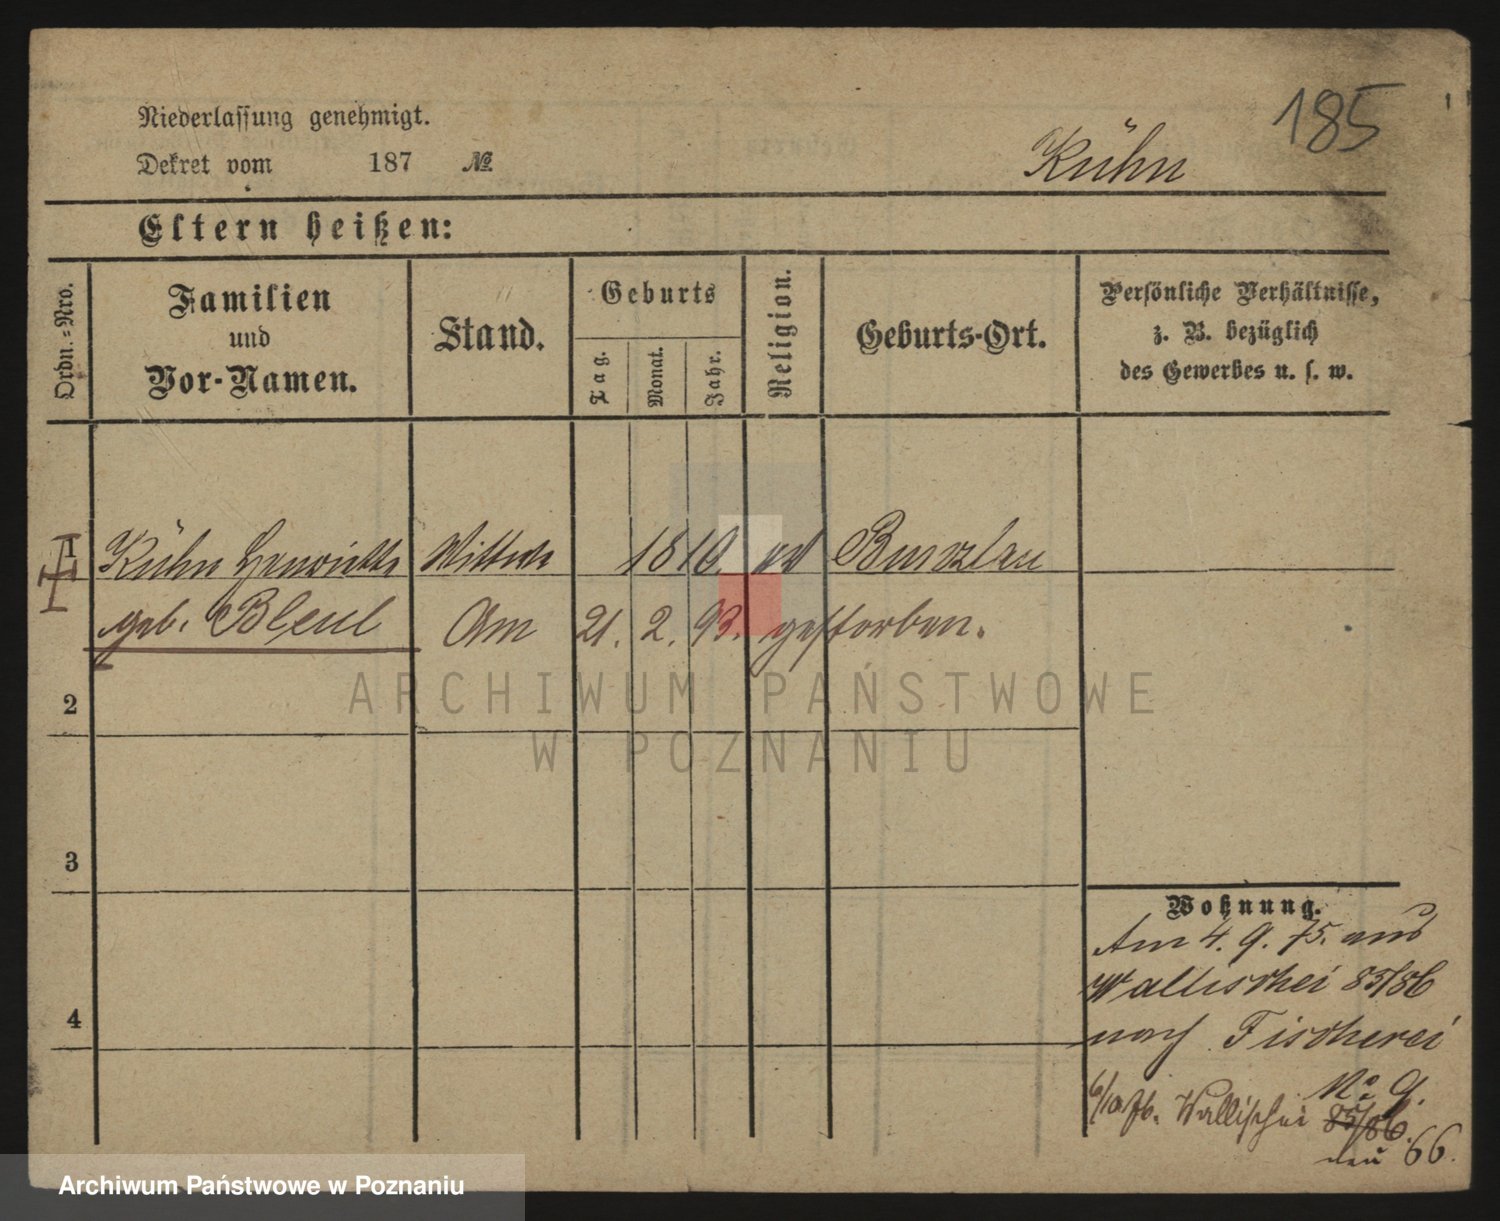 185
Niederlassung genehmigt.
Dekret vom 187 №
Kühn
Eltern heißen:
Ordn.-Nro.
Familien
und
Vor-Namen.
Stand.
Geburts
Tag.
Monat.
Jahr.
Religion.
Geburts-Ort.
Persönliche Verhältnisse,
z. B. bezüglich
des Gewerbes u. s. w.
1 Kühn Henriette Wittwe 1810 Bunzlau
geb. Am 21. 2. 93. gestorben.
2
ARCHIWUM PAŃSTWOWE
W POZNANIU
3
Wohnung.
Am 4. 9. 75. aus
Wallischei 85/86
4
nach Fischerei
No 9.
Wallischei 85/86.
neu 66.
Archiwum Państwowe w Poznaniu